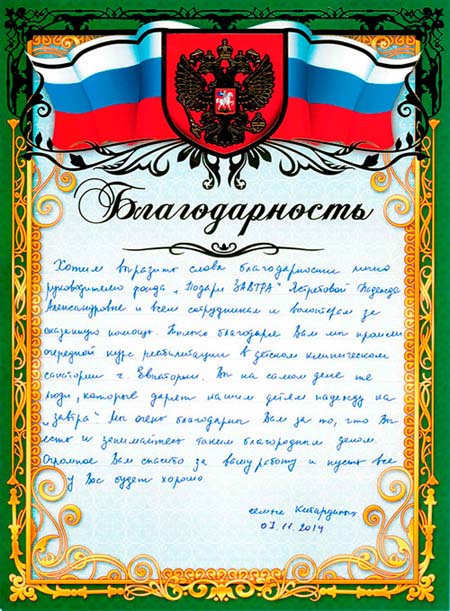 Благодарность
Хотим выразить слова благодарности лично
руководителю фонда „Подари ЗАВТРА" Ястребовой Надежде
Александровне и всем сотрудникам и волонтерам за
оказанную помощь. Только благодаря Вам мы прошли
очередной курс реабилитации в детском клиническом
санатории г. Евпатории. Вы на самом деле те
люди, которые дарят нашим детям надежду на
„завтра" Мы очень благодарны Вам за то, что Вы
есть и занимайтесь таким благородным делом.
Огромное Вам спасибо за вашу работу и пусть все
у Вас будет хорошо
семья
03.11.2014